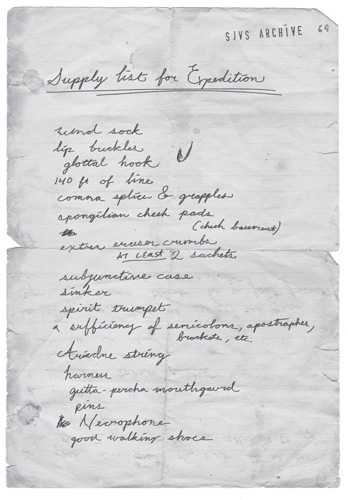 SJVS ARCHIVE 69
Supply list for Expedition
wind sock
lip buckles
glottal hook
140 ft of line
comma splice & grapples
spongilian cheek pads
(check basement)
extra eraser crumbs
AT LEAST 2 sachets
subjunctive case
sinker
spirit trumpet
a sufficiency of semicolons, apostrophes,
brackets, etc.
Ariadne string
harness
gutta-percha mouthguard
pins
Necrophone
good walking shoes